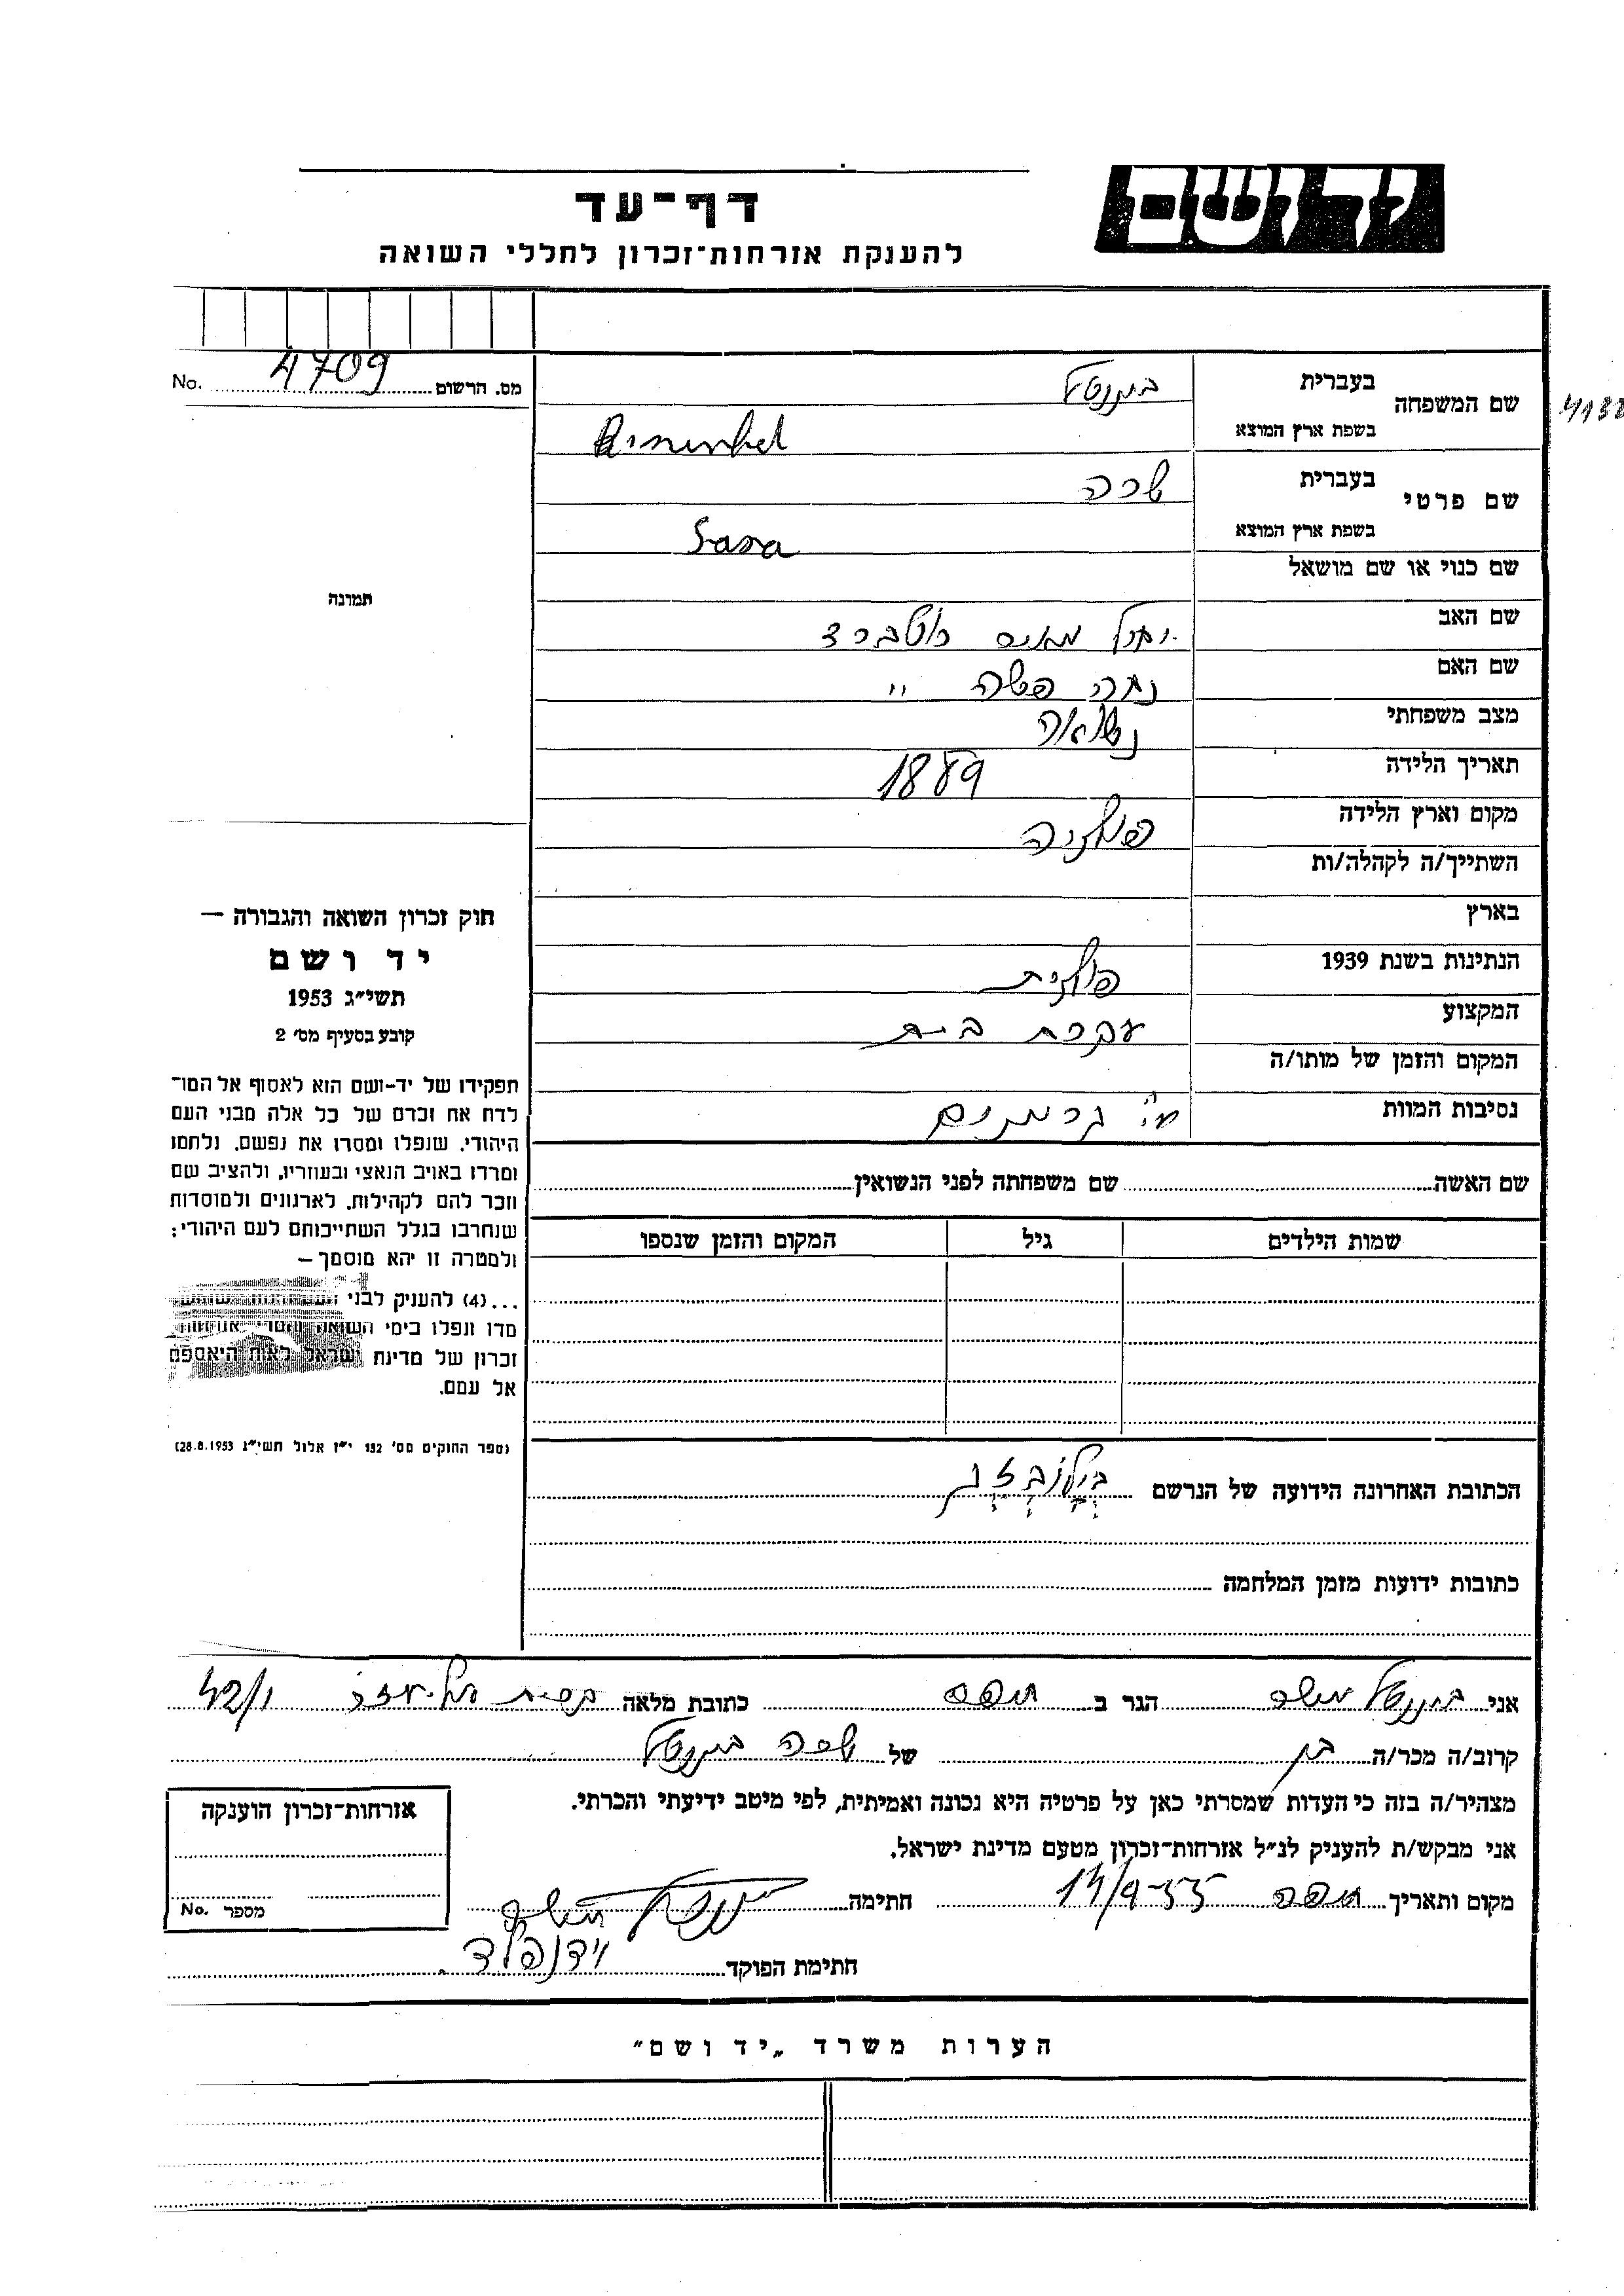 יד ושם
דף־עד
להענקת אזרחות־זכרון לחללי השואה
מס. הרשום 4709 No.
שם המשפחה
בעברית
בשפת ארץ המוצא
שם פרטי
בעברית שרה
בשפת ארץ המוצא Sara
שם כנוי או שם מושאל
שם האב
שם האם
מצב משפחתי נשואה
תאריך הלידה 1889
מקום וארץ הלידה פולניה
השתייך/ה לקהלה/ות
בארץ
הנתינות בשנת 1939 פולנית
המקצוע עקרת בית
המקום והזמן של מותו/ה
נסיבות המוות ע"י גרמנים
שם האשה שם משפחתה לפני הנשואין
שמות הילדים גיל המקום והזמן שנספו
הכתובת האחרונה הידועה של הנרשם
כתובות ידועות מזמן המלחמה
תמונה
חוק זכרון השואה והגבורה —
יד ושם
תשי״ג 1953
קובע בסעיף מס׳ 2
תפקידו של יד-ושם הוא לאסוף אל המו־
לדת את זכרם של כל אלה מבני העם
היהודי, שנפלו ומסרו את נפשם, נלחמו
ומרדו באויב הנאצי ובעוזריו, ולהציב שם
וזכר להם לקהילות, לארגונים ולמוסדות
שנחרבו בגלל השתייכותם לעם היהודי;
ולמטרה זו יהא מוסמך —
...(4) להעניק לבני
מדו ונפלו בימי השואה אזרחות
זכרון של מדינת ישראל לאות היאספם
אל עמם.
(ספר החוקים מס׳ 132 י״ז אלול תשי״ג 28.8.1953)
אני משה הגר ב חיפה כתובת מלאה 42/1
קרוב/ה מכר/ה בן של שרה
מצהיר/ה בזה כי העדות שמסרתי כאן על פרטיה היא נכונה ואמיתית, לפי מיטב ידיעתי והכרתי.
אני מבקש/ת להעניק לנ״ל אזרחות־זכרון מטעם מדינת ישראל.
מקום ותאריך חיפה 14/9-55 חתימה
חתימת הפוקד וידנפלד
אזרחות־זכרון הוענקה
מספר No.
הערות משרד „יד ושם״